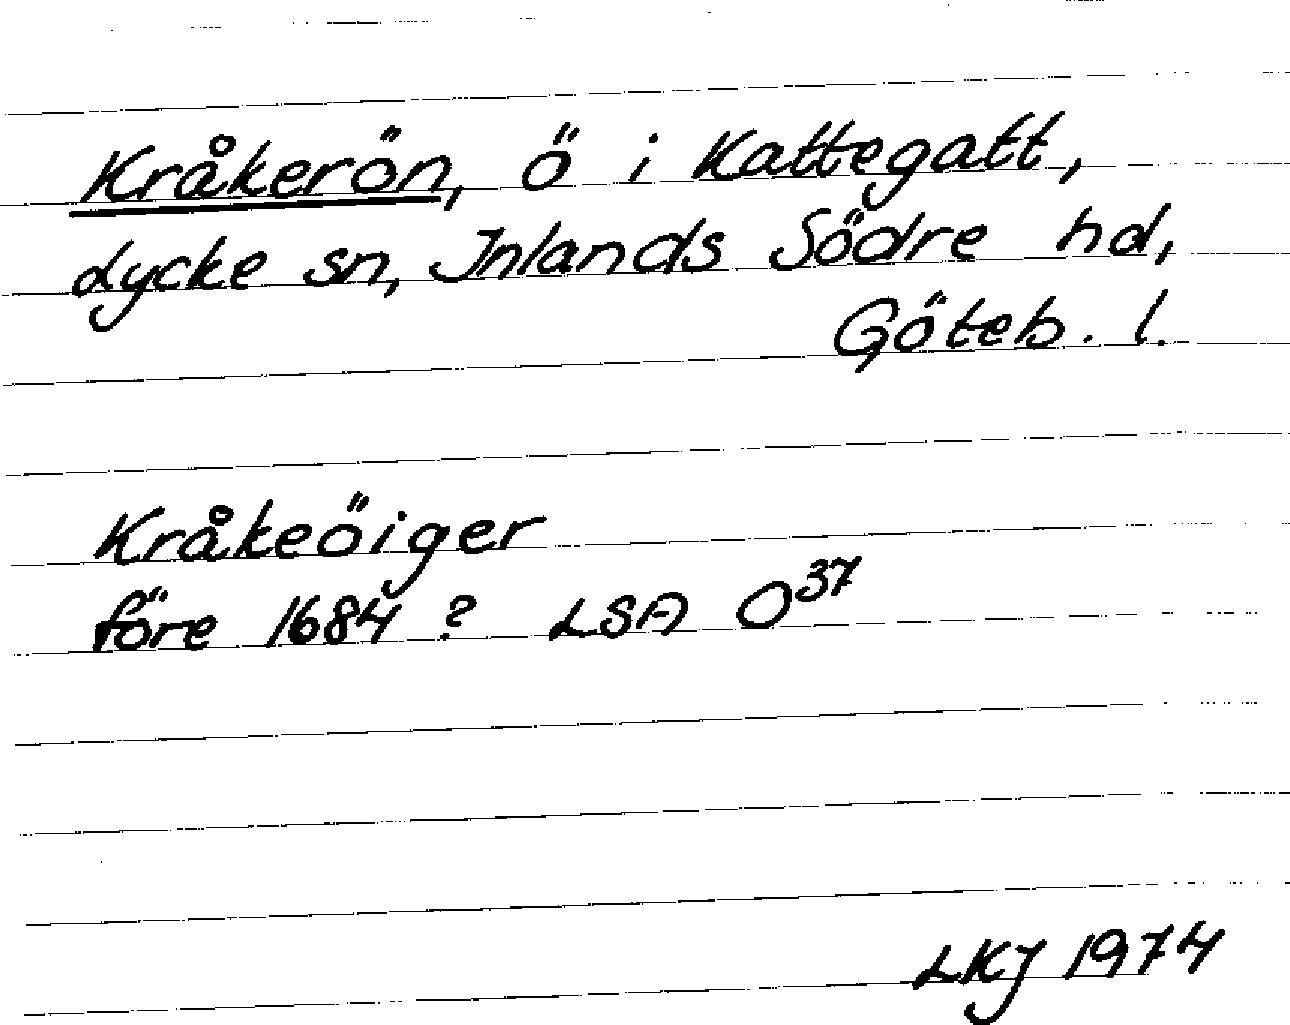 Kråkerön, ö i Kattegatt,
Lycke sn, Inlands Södre hd,
Göteb. l.
Kråkeöiger
före 1684 ? LSA O37
LKJ 1974